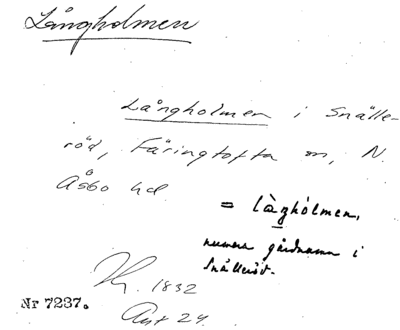 Långholmen
Långholmen i Snälle-
röd, Färingtofta sn, N.
Åsbo hd
= làghólmen,
numera gårdnamn i
Snälleröd.
1832
Akt 24.
Nr 7237.